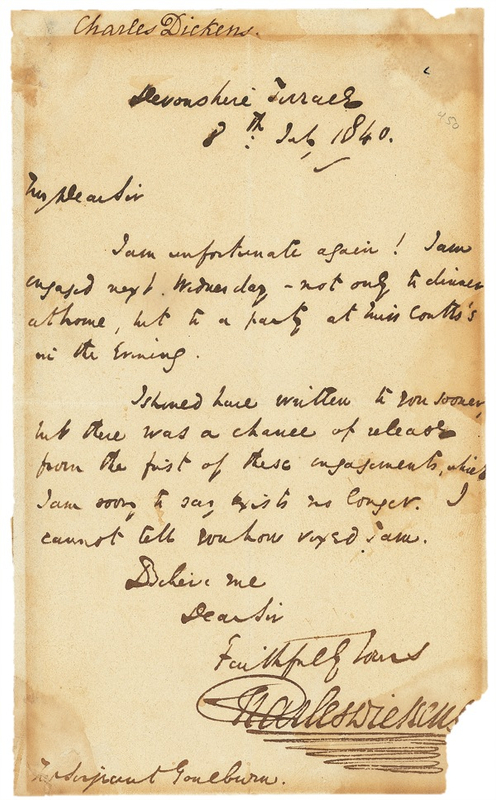 Charles Dickens.
Devonshire Terrace
8th July 1840.
450
My Dear Sir
I am unfortunate again! I am
engaged next Wednesday - not only to dinner
at home, but to a party at Miss Coutts's
in the Evening.
I should have written to you sooner,
but there was a chance of release
from the first of these engagements, which
I am sorry to say exists no longer. I
cannot tell you how vexed I am.
Believe me
Dear Sir
Faithfully Yours
Charles Dickens
Mr Serjeant Goulburn.